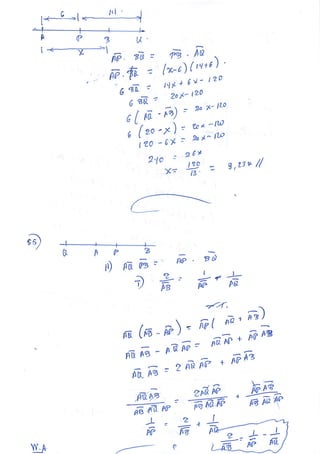 6 14
A P B Q
x
AP . BQ = PB . AQ
AP . BQ = (x-6)(14+6)
6 BQ = 14x + 6x - 120
6 BQ = 20x - 120
6 (AQ - AB) = 20x - 120
6 (20 - x) = 20x - 120
120 - 6x = 20x - 120
240 = 26x
x = 120/13 = 9,23x //
55)
Q A P B
H) AQ PB = AP . BQ
T) 2/AB = 1/AP - 1/AQ
AQ (AB - AP) = AP (AQ + AB)
AQ AB - AQ AP = AQ AP + AP AB
AQ AB = 2 AQ AP + AP AB
AQ AB / AB AQ AP = 2 AQ AP / AB AQ AP + AP AB / AB AQ AP
1/AP = 2/AB + 1/AQ
2/AB = 1/AP - 1/AQ
W.A